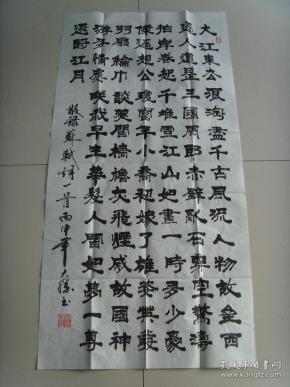 大江東去浪淘盡千古風流人物故壘西
邊人道是三國周郎赤壁亂石穿空驚濤
拍岸卷起千堆雪江山如畫一時多少豪
傑遙想公瑾當年小喬初嫁了雄姿英發
羽扇綸巾談笑間檣櫓灰飛煙滅故國神
游多情應笑我早生華髮人間如夢一尊
還酹江月
敬錄蘇軾詩一首丙申年大書